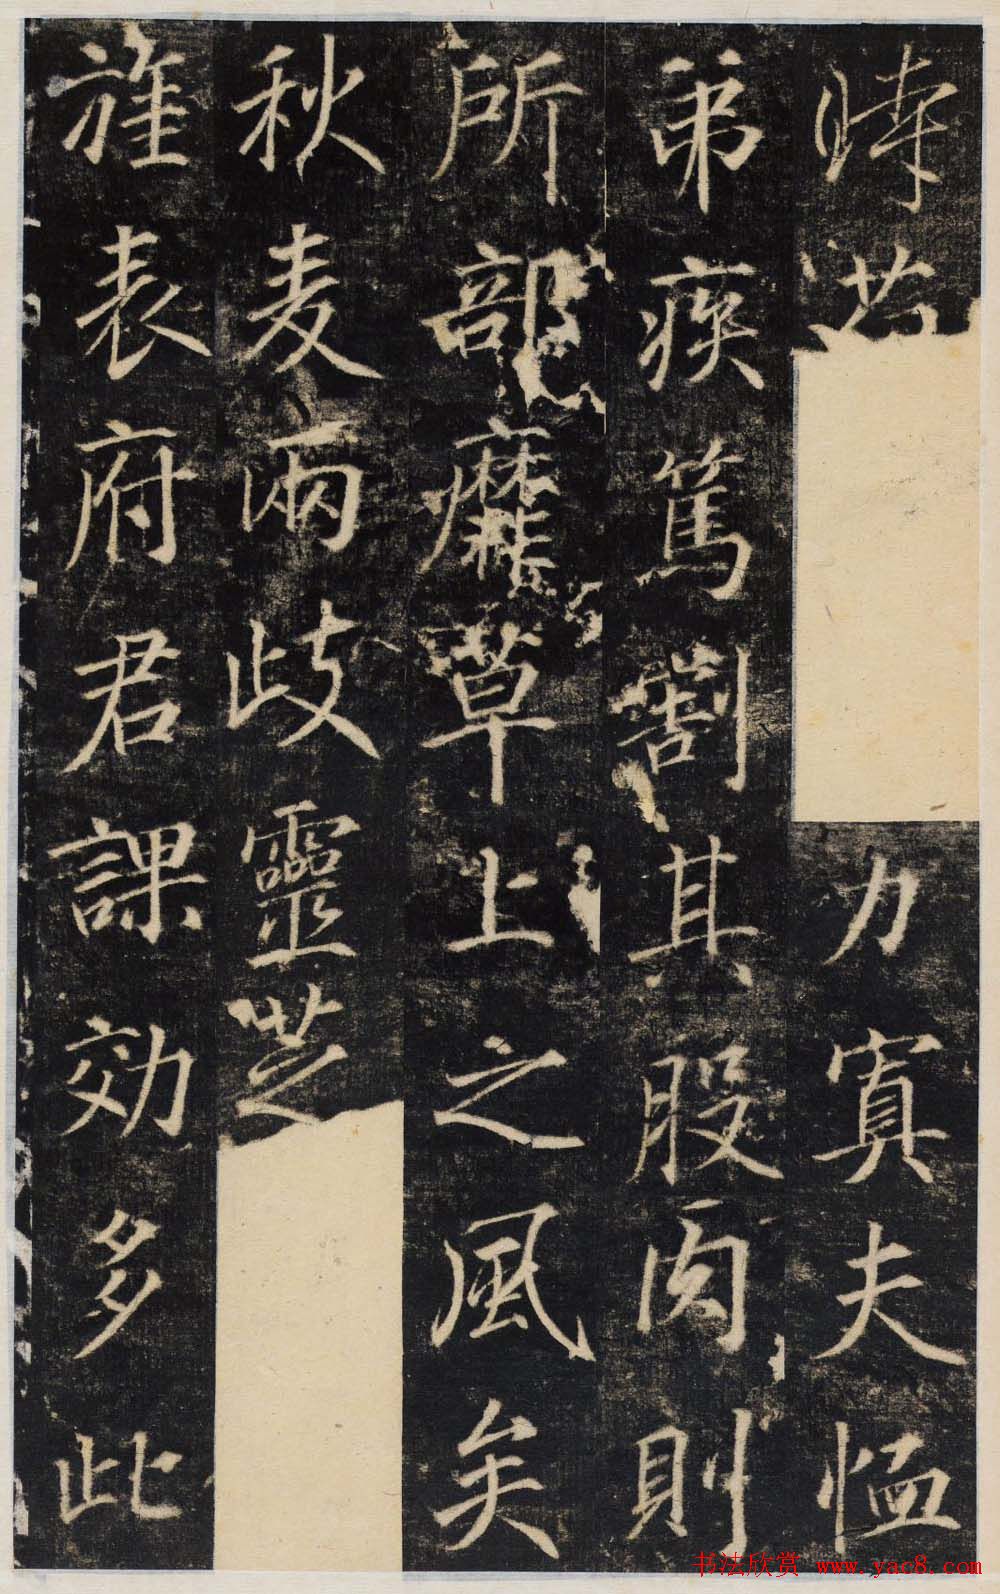 時力寡夫恤
弟疾篤割其股肉則
所部靡草上之風矣
秋麦兩歧靈芝
旌表府君課効多此
书法欣赏 www.yac8.com